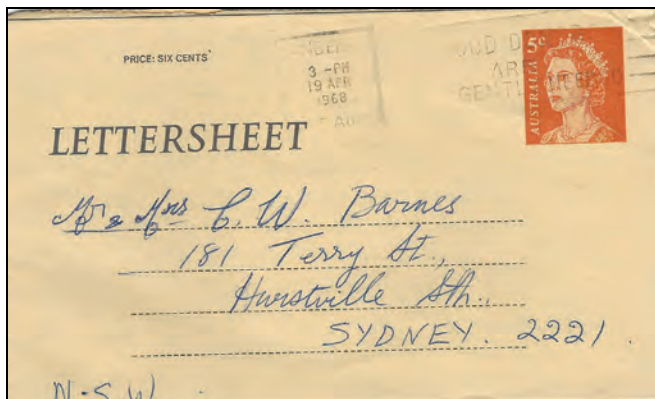 PRICE: SIX CENTS
3 - PM
19 APR
1968
5c
AUSTRALIA
LETTERSHEET
Mr & Mrs C. W. Barnes
181 Terry St.,
Hurstville Sth.,
SYDNEY. 2221.
N.S.W.